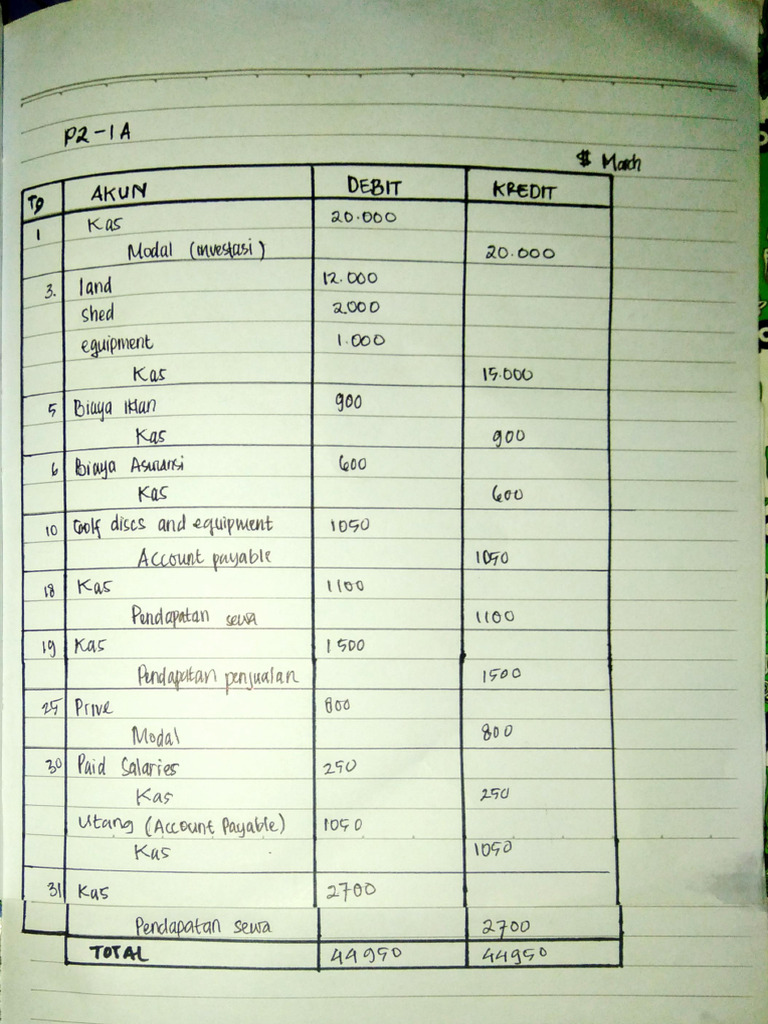 P2-1A
$ March
Tg AKUN DEBIT KREDIT
1 Kas 20.000
Modal (investasi) 20.000
3. land 12.000
shed 2.000
equipment 1.000
Kas 15.000
5 Biaya Iklan 900
Kas 900
6 Biaya Asuransi 600
Kas 600
10 Golf discs and equipment 1050
Account payable 1050
18 Kas 1100
Pendapatan sewa 1100
19 Kas 1500
Pendapatan penjualan 1500
25 Prive 800
Modal 800
30 Paid Salaries 250
Kas 250
Utang (Account Payable) 1050
Kas 1050
31 Kas 2700
Pendapatan sewa 2700
TOTAL 44950 44950